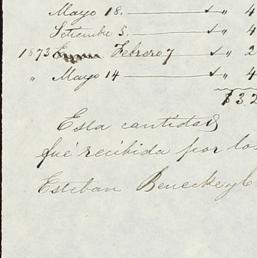 Mayo 18. — " 4
Setiembre 5. — " 4
1873 Febrero 7 — " 2
" Mayo 14 — " 4
$32
Esta cantidad
fué recibida por los
Esteban Benecke y C